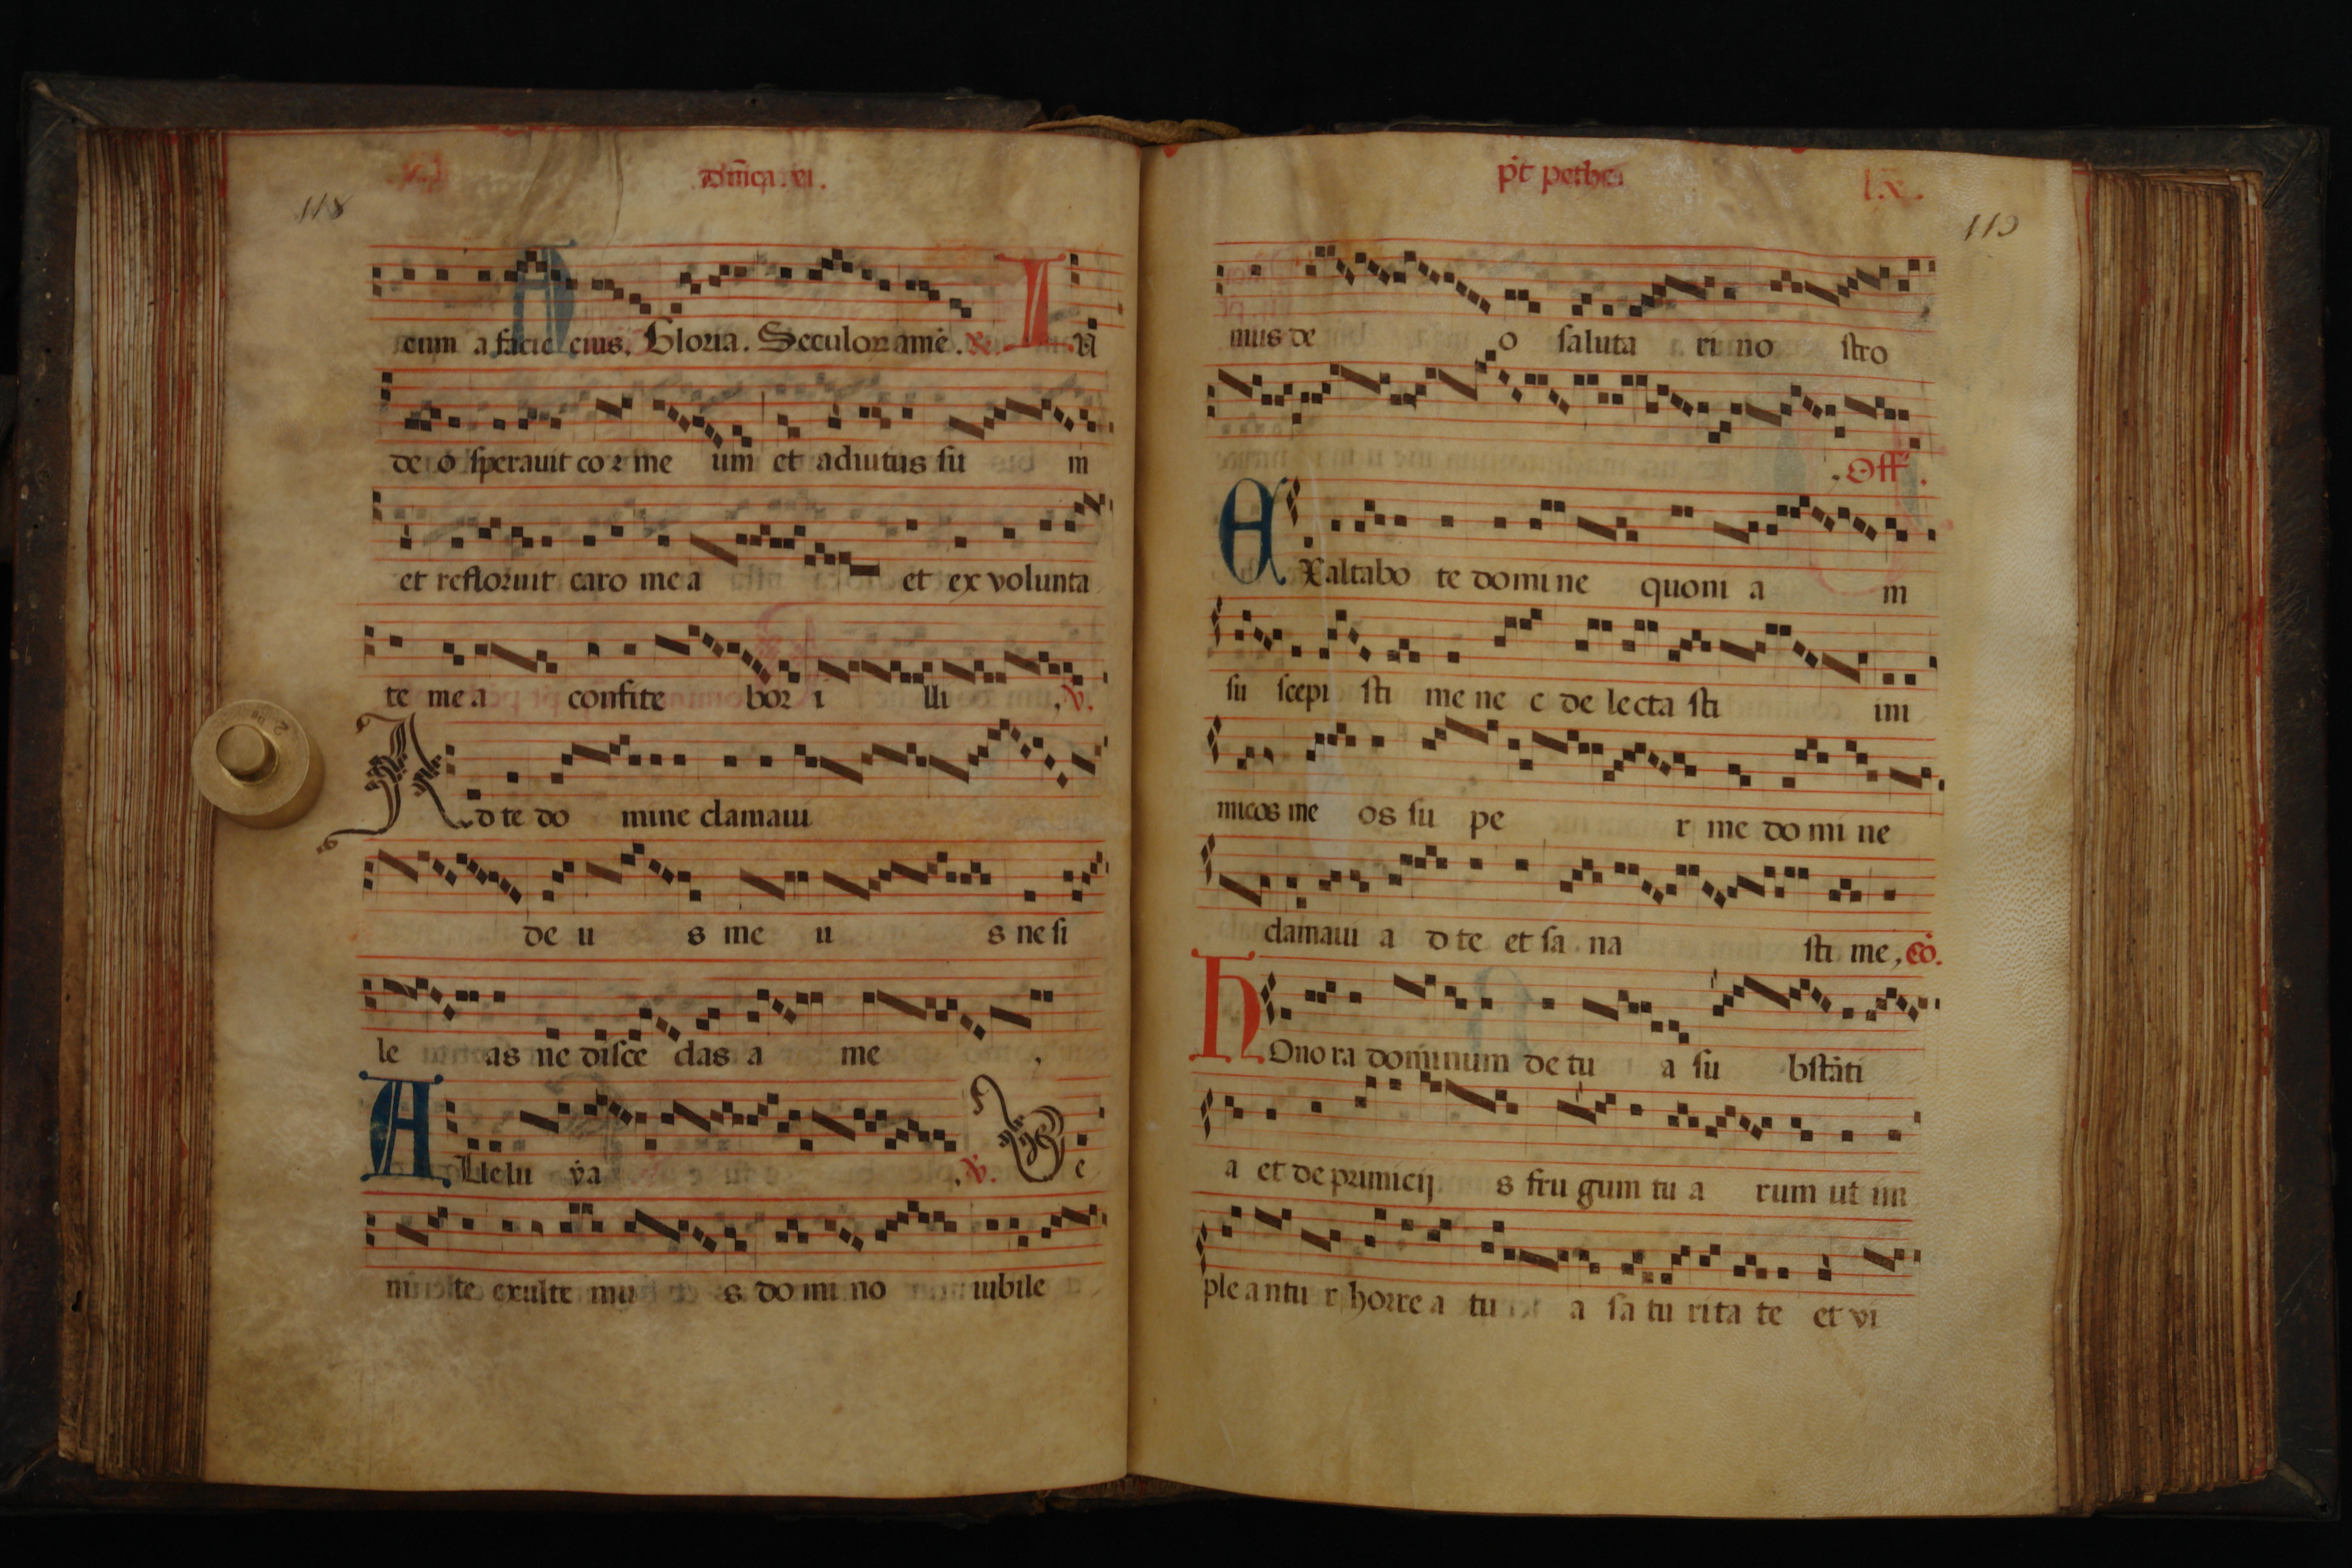 118
dn̄ica. xi.
eum a facie eius. Gloria. Seculoꝝ amē. R. In
de o sperauit cor me um et adiutus su m
et refloruit caro me a et ex volunta
te me a confite bor i lli , V.
Ad te do mine clamaui
de u s me u s ne si
le as ne disce das a me ,
A Llelu ya . V. Ve
nite exulte mu s do mi no iubile
p̄t pethec
lx.
119
mus de o saluta ri no stro
. Off .
EXaltabo te domi ne quoni a m
su scepi sti me ne c de lecta sti ini
micos me os su pe r me do mi ne
clamaui a d te et sa na sti me , Cō.
HOno ra dominum de tu a su bstāti
a et de primicij s fru gum tu a rum ut im
ple a ntu r horre a tu a sa tu rita te et vi